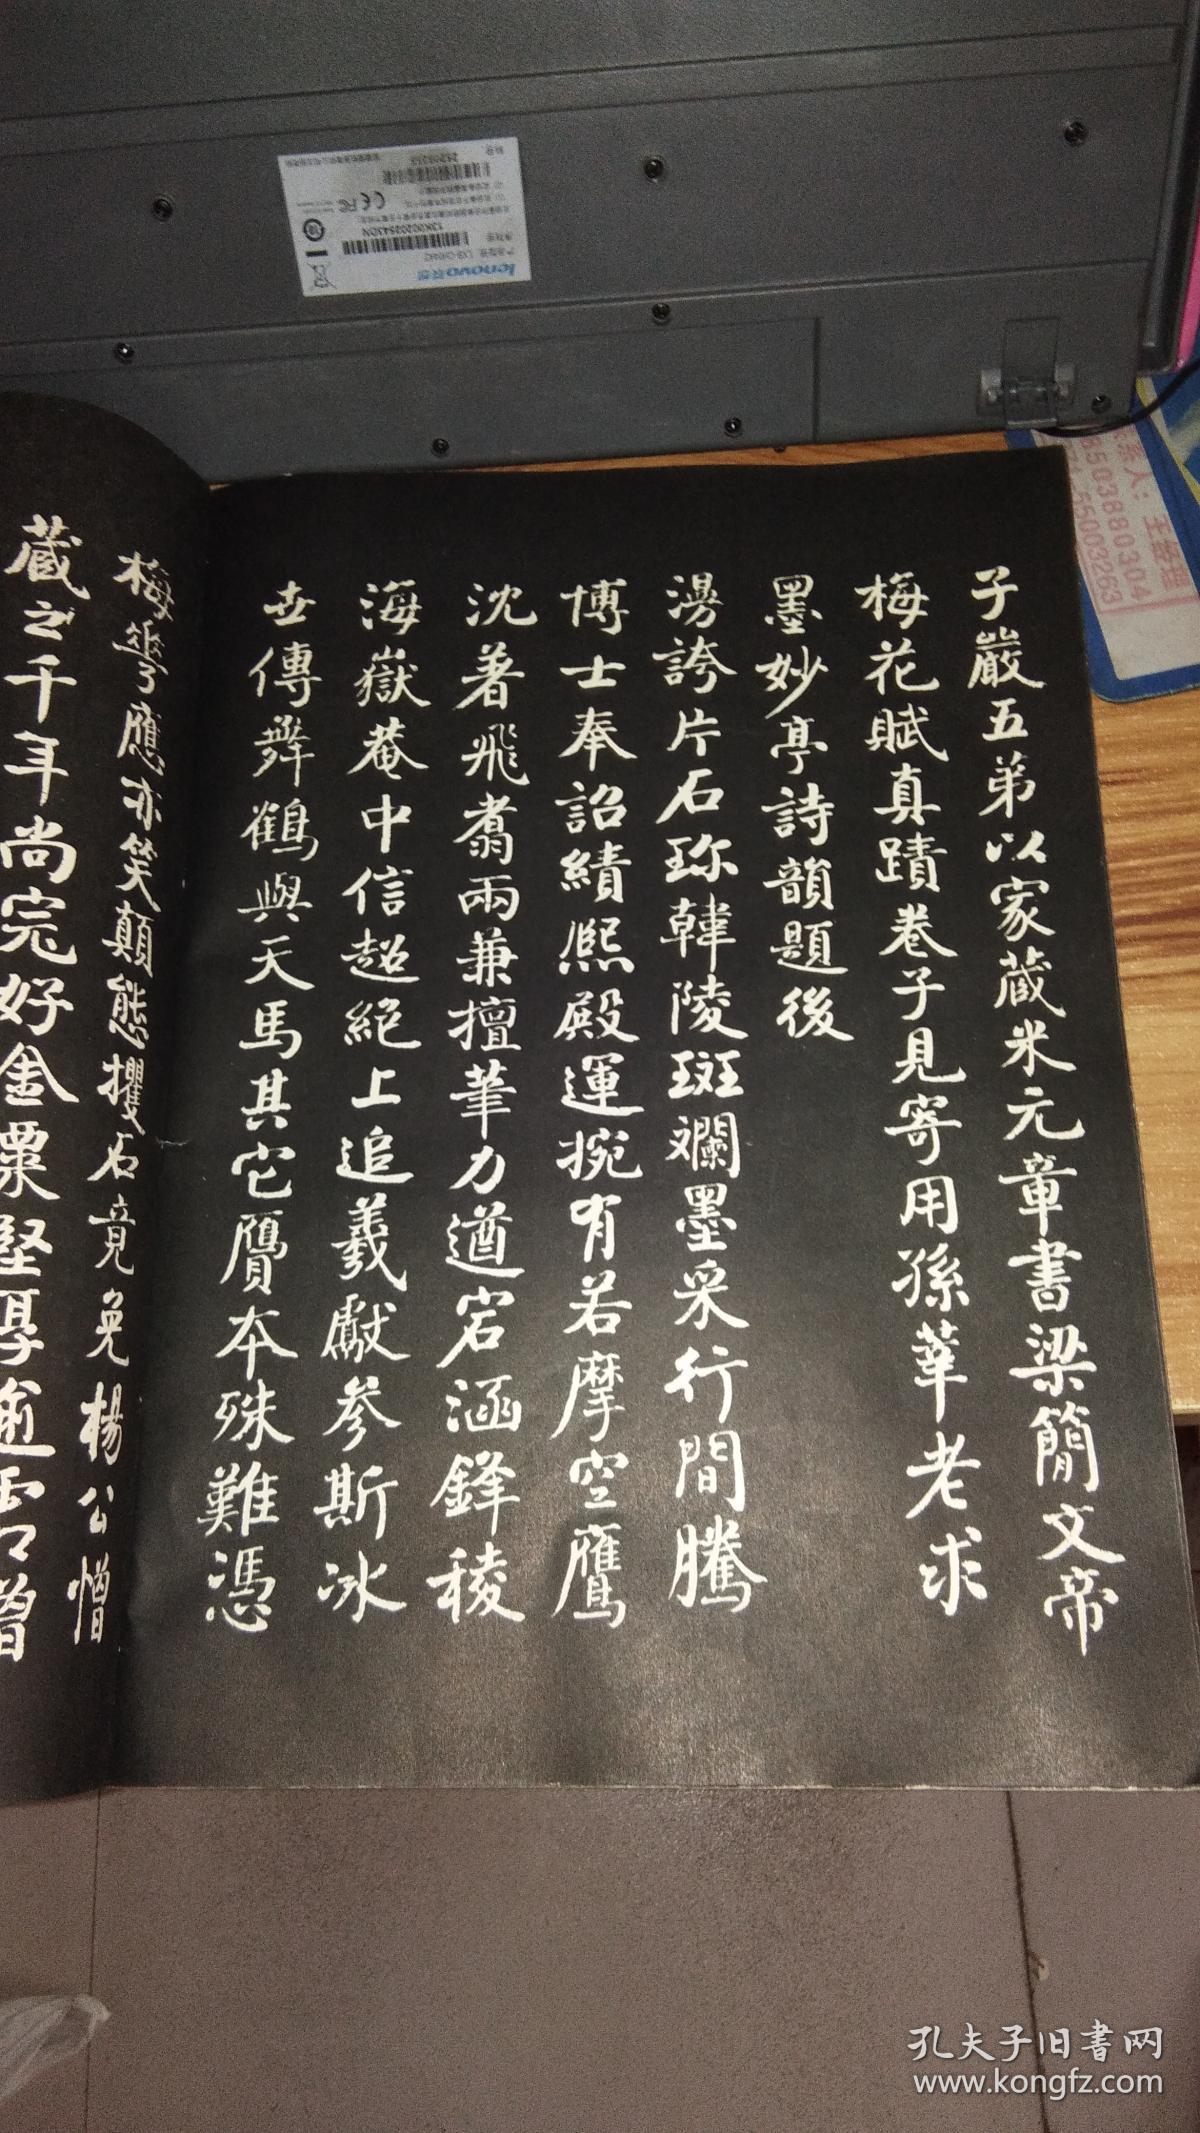 子嚴五弟以家蔵米元章書梁簡文帝
梅花賦真蹟巻子見寄用孫莘老求
墨妙亭詩韻題後
漫誇片石珎韓陵斑斕墨采行間騰
博士奉詔績熙殿運捥有若摩空鷹
沈著飛翥兩兼擅筆力遒宕涵鋒稜
海嶽菴中信超絕上追羲獻參斯冰
世傳舞鶴與天馬其它贋本殊難憑
梅雩應亦笑顛態攫石竟免楊公憎
蔵之千年尚完好金粟堅厚
lenovo联想
人：王
85038880304
55003263
孔夫子旧书网
www.kongfz.com